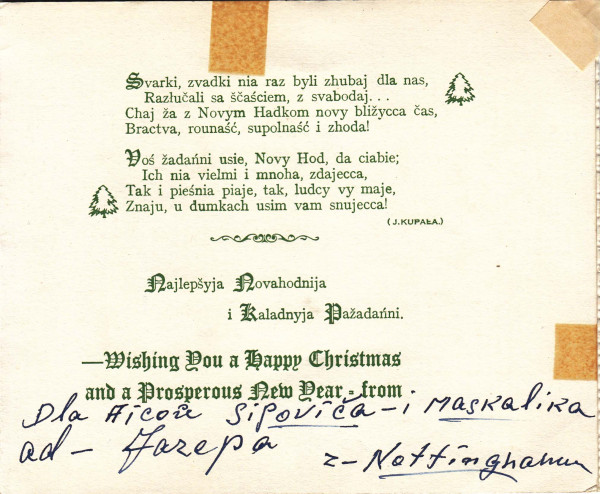 Svarki, zvadki nia raz byli zhubaj dla nas,
Razłučali sa ščaściem, z svabodaj...
Chaj ža z Novym Hadkom novy bližycca čas,
Bractva, rounaść, supolnaść i zhoda!
Voś žadańni usie, Novy Hod, da ciabie;
Ich nia vielmi i mnoha, zdajecca,
Tak i pieśnia piaje, tak, ludcy vy maje,
Znaju, u dumkach usim vam snujecca!
(J.KUPAŁA.)
Najlepšyja Novahodnija
i Kaladnyja Pažadańni.
—Wishing You a Happy Christmas
and a Prosperous New Year - from
Dla Ajcoŭ Sipoviča - i Maskalika
ad - Jazepa
z - Nottinghamu